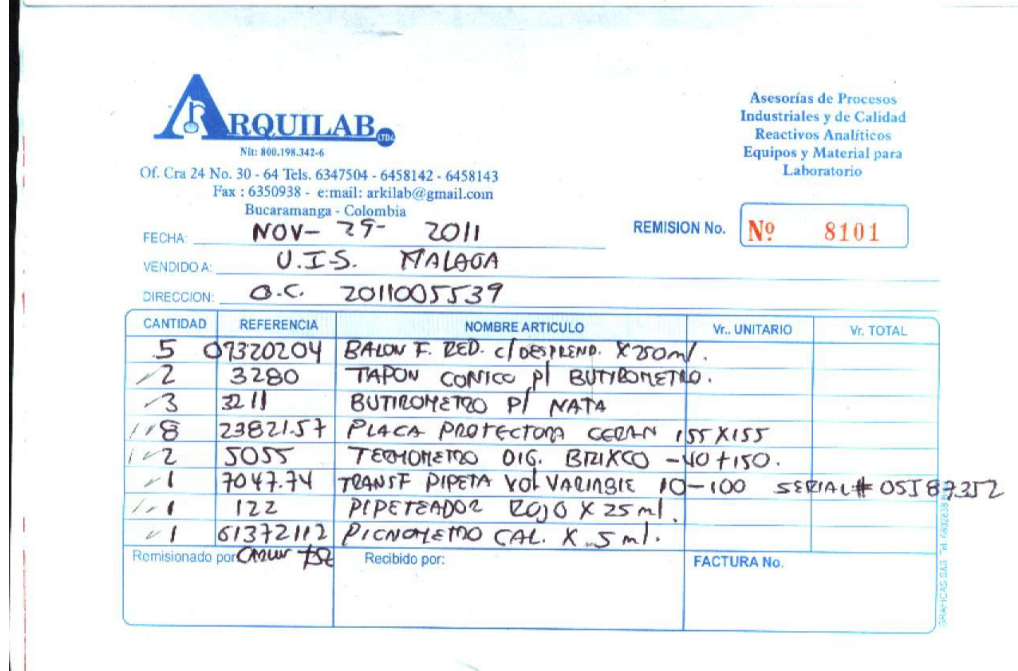 ARQUILAB LTDA
Nit: 800.198.342-6
Of. Cra 24 No. 30 - 64 Tels. 6347504 - 6458142 - 6458143
Fax : 6350938 - e:mail: arkilab@gmail.com
Bucaramanga - Colombia
Asesorías de Procesos
Industriales y de Calidad
Reactivos Analíticos
Equipos y Material para
Laboratorio
REMISION No. Nº 8101
FECHA: NOV- 29- 2011
VENDIDO A: U.I.S. MALAGA
DIRECCION: O.C. 2011005539
CANTIDAD REFERENCIA NOMBRE ARTICULO Vr.. UNITARIO Vr. TOTAL
5 07320204 BALON F. RED. c/DESPREND. X250ml.
2 3280 TAPON CONICO p/ BUTIROMETRO.
3 3211 BUTIROMETRO P/ NATA
8 2382157 PLACA PROTECTORA CERAN 155X155
2 5055 TERMOMETRO DIG. BRIXCO -40+150.
1 7047.74 TRANSF PIPETA VOL VARIABLE 10-100 SERIAL# 05J87352
1 122 PIPETEADOR ROJO X 25ml.
1 61372112 PICNOMETRO CAL. X 5ml.
Remisionado por Recibido por: FACTURA No.
GRAFICAS SAS Tel.